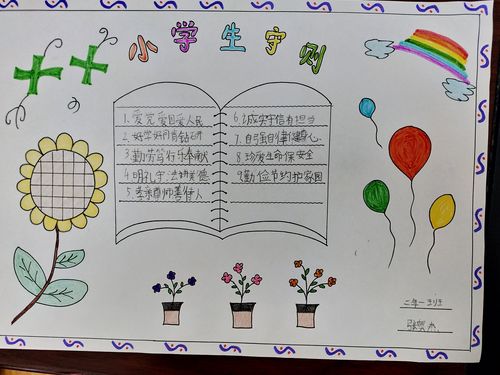 小学生守则
1.爱党爱国爱人民
2.好学好问肯钻研
3.勤劳笃行乐奉献
4.明礼守法讲美德
5.孝亲尊师善待人
6.诚实守信有担当
7.自强自律健身心
8.珍爱生命保安全
9.勤俭节约护家园
二年一班